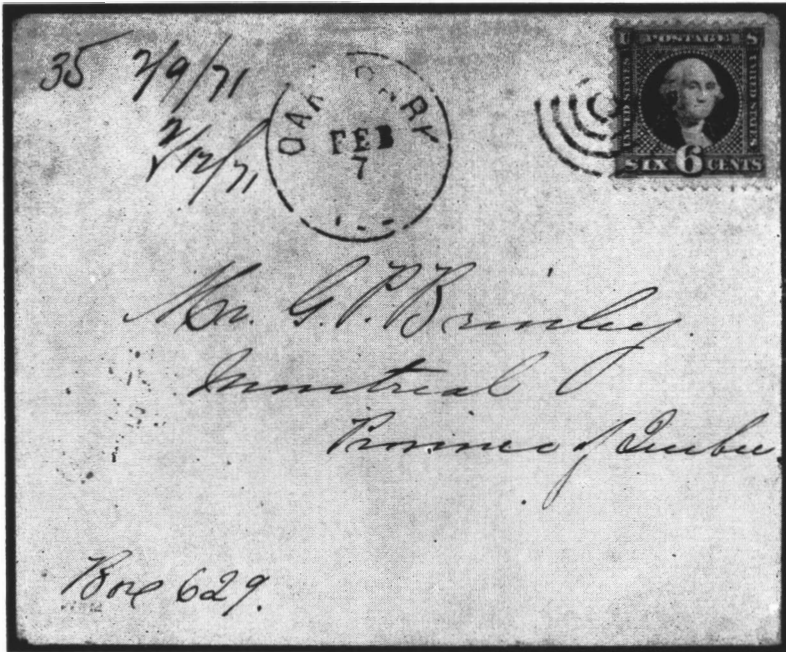 35 2/9/71
2/12/71
OAK PARK
FEB
7
U POSTAGE S
UNITED STATES
UNITED STATES
SIX 6 CENTS
Mr. G. P. Brinley
Montreal
Province of Quebec.
Box 629.